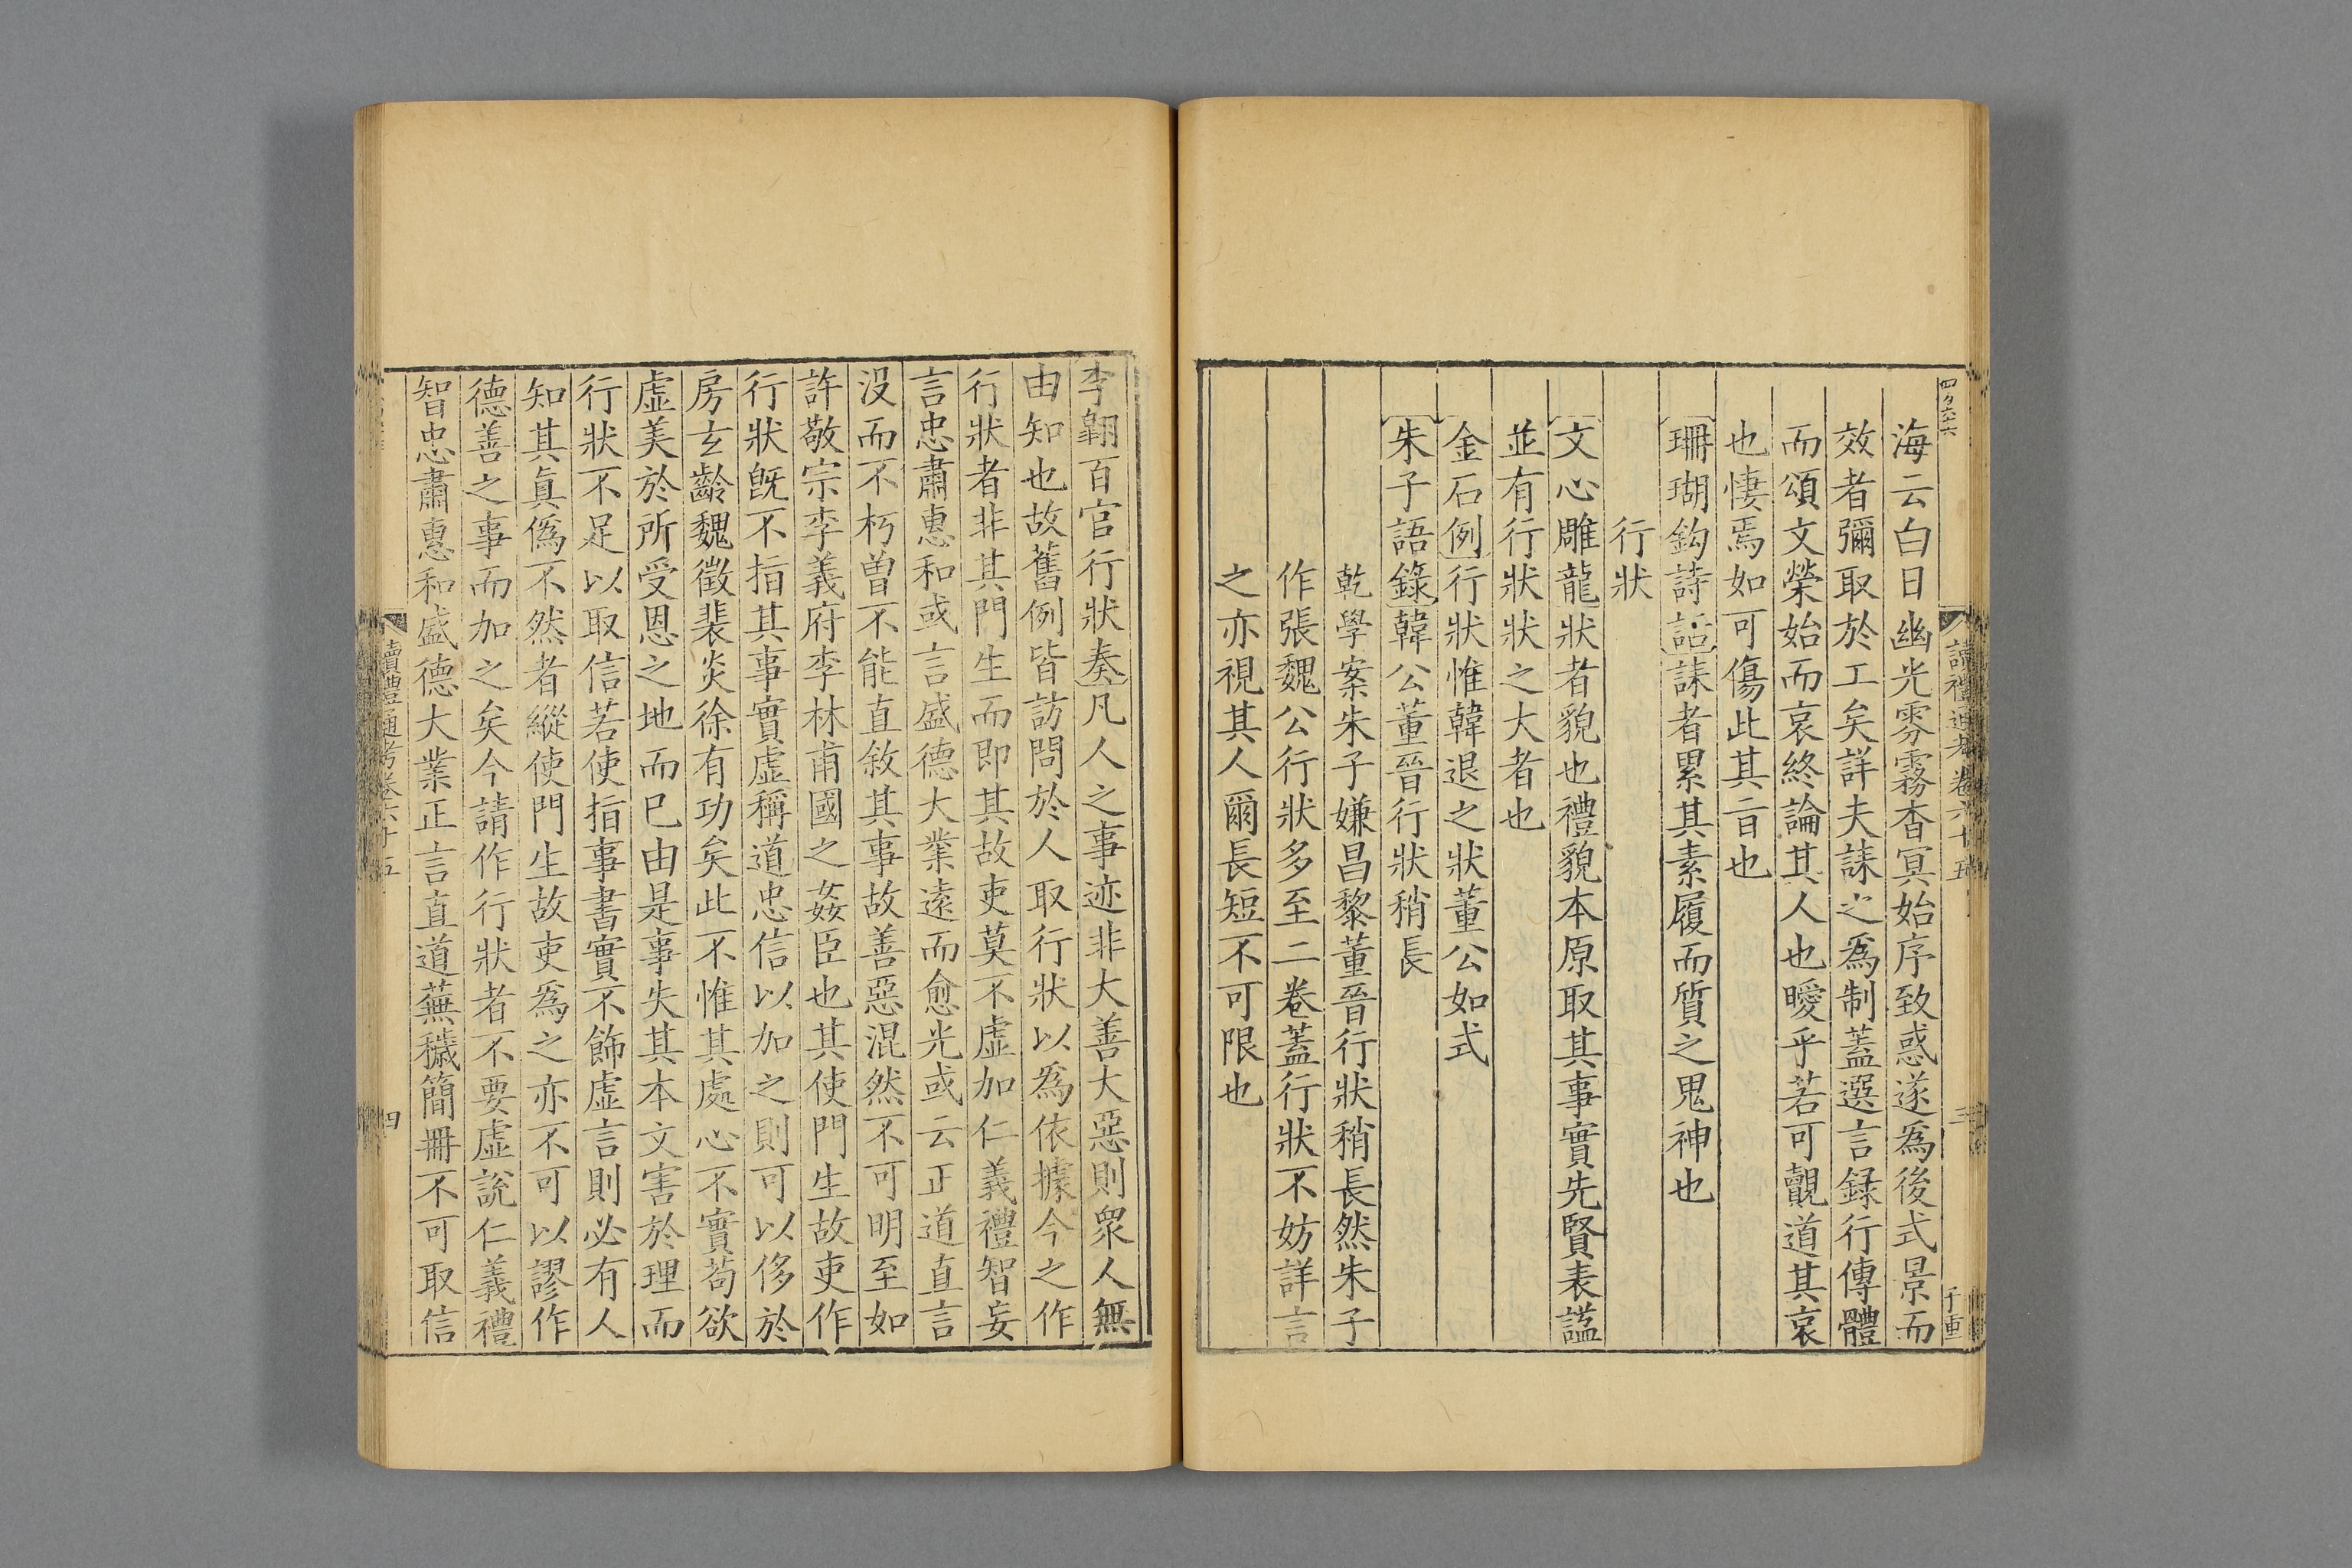 四夕六十六
讀禮通考卷六十五
三
于重
海云白日幽光雰霧杳冥始序致惑遂爲後式景而
效者彌取於工矣詳夫誄之爲制蓋選言録行傳體
而頌文榮始而哀終論其人也曖乎若可覿道其哀
也悽焉如可傷此其旨也
珊瑚鈎詩話誄者累其素履而質之鬼神也
行狀
文心雕龍狀者貌也禮貌本原取其事實先賢表謚
並有行狀狀之大者也
金石例行狀惟韓退之狀董公如式
朱子語錄韓公董晉行狀稍長
乾學案朱子嫌昌黎董晉行狀稍長然朱子
作張魏公行狀多至二卷蓋行狀不妨詳言
之亦視其人爾長短不可限也
李翺百官行狀奏凡人之事迹非大善大惡則衆人無
由知也故舊例皆訪問於人取行狀以爲依據今之作
行狀者非其門生而即其故吏莫不虛加仁義禮智妄
言忠肅惠和或言盛德大業遠而愈光或云正道直言
没而不朽曾不能直敘其事故善惡混然不可明至如
許敬宗李義府李林甫國之姦臣也其使門生故吏作
行狀旣不指其事實虛稱道忠信以加之則可以侈於
房玄齡魏徵裴炎徐有功矣此不惟其處心不實苟欲
虛美於所受恩之地而巳由是事失其本文害於理而
行狀不足以取信若使指事書實不飾虛言則必有人
知其眞僞不然者縱使門生故吏爲之亦不可以謬作
德善之事而加之矣今請作行狀者不要虛說仁義禮
智忠肅惠和盛德大業正言直道蕪穢簡冊不可取信
讀禮通考卷六十五
四